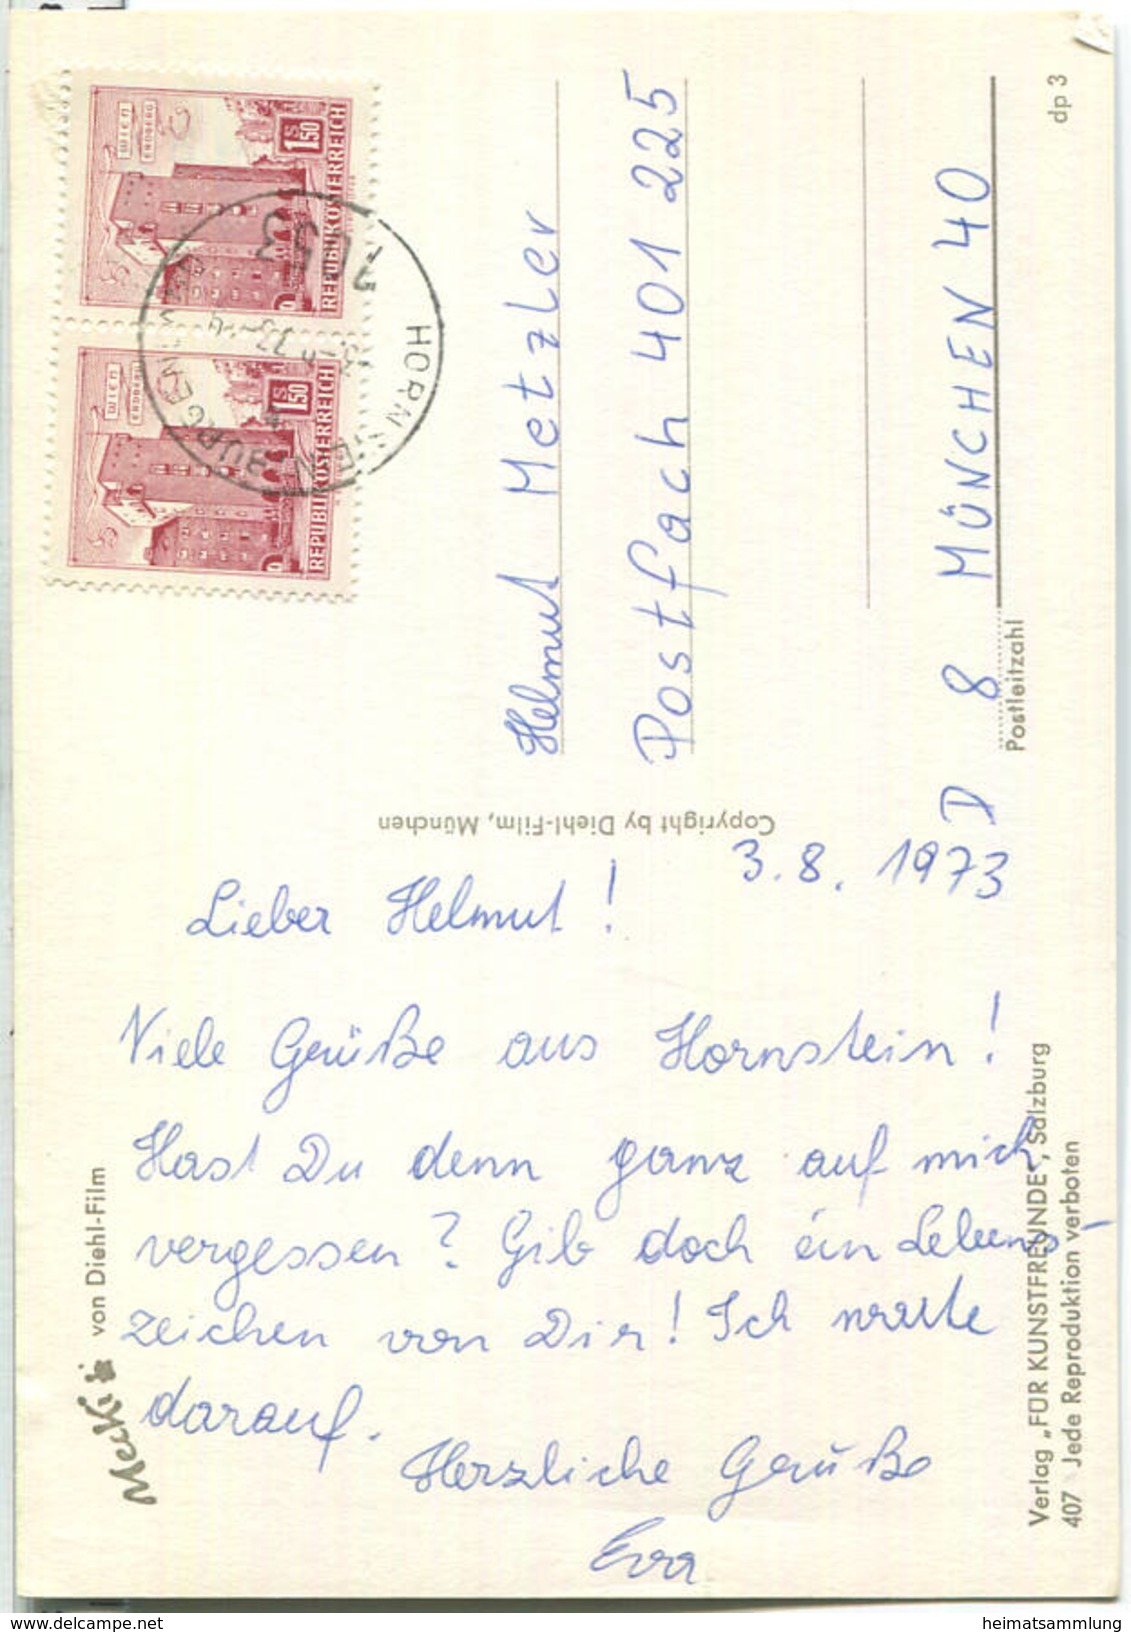 Mecki
von Diehl-Film
3.8.1973
Lieber Helmut!
Viele Grüße aus Hornstein!
Hast Du denn ganz auf mich
vergessen? Gib doch ein Lebens-
zeichen von Dir! Ich warte
darauf.
Herzliche Grüße
Eva
Copyright by Diehl-Film, München
Verlag „FÜR KUNSTFREUNDE", Salzburg
407 Jede Reproduktion verboten
WIEN
ERDBERG
S 1.50
REPUBLIK ÖSTERREICH
WIEN
ERDBERG
S 1.50
REPUBLIK ÖSTERREICH
HORNSTEIN, BURGENLAND
Helmut Metzler
Postfach 401 225
D 8 MÜNCHEN 40
Postleitzahl
dp 3
www.delcampe.net
heimatsammlung